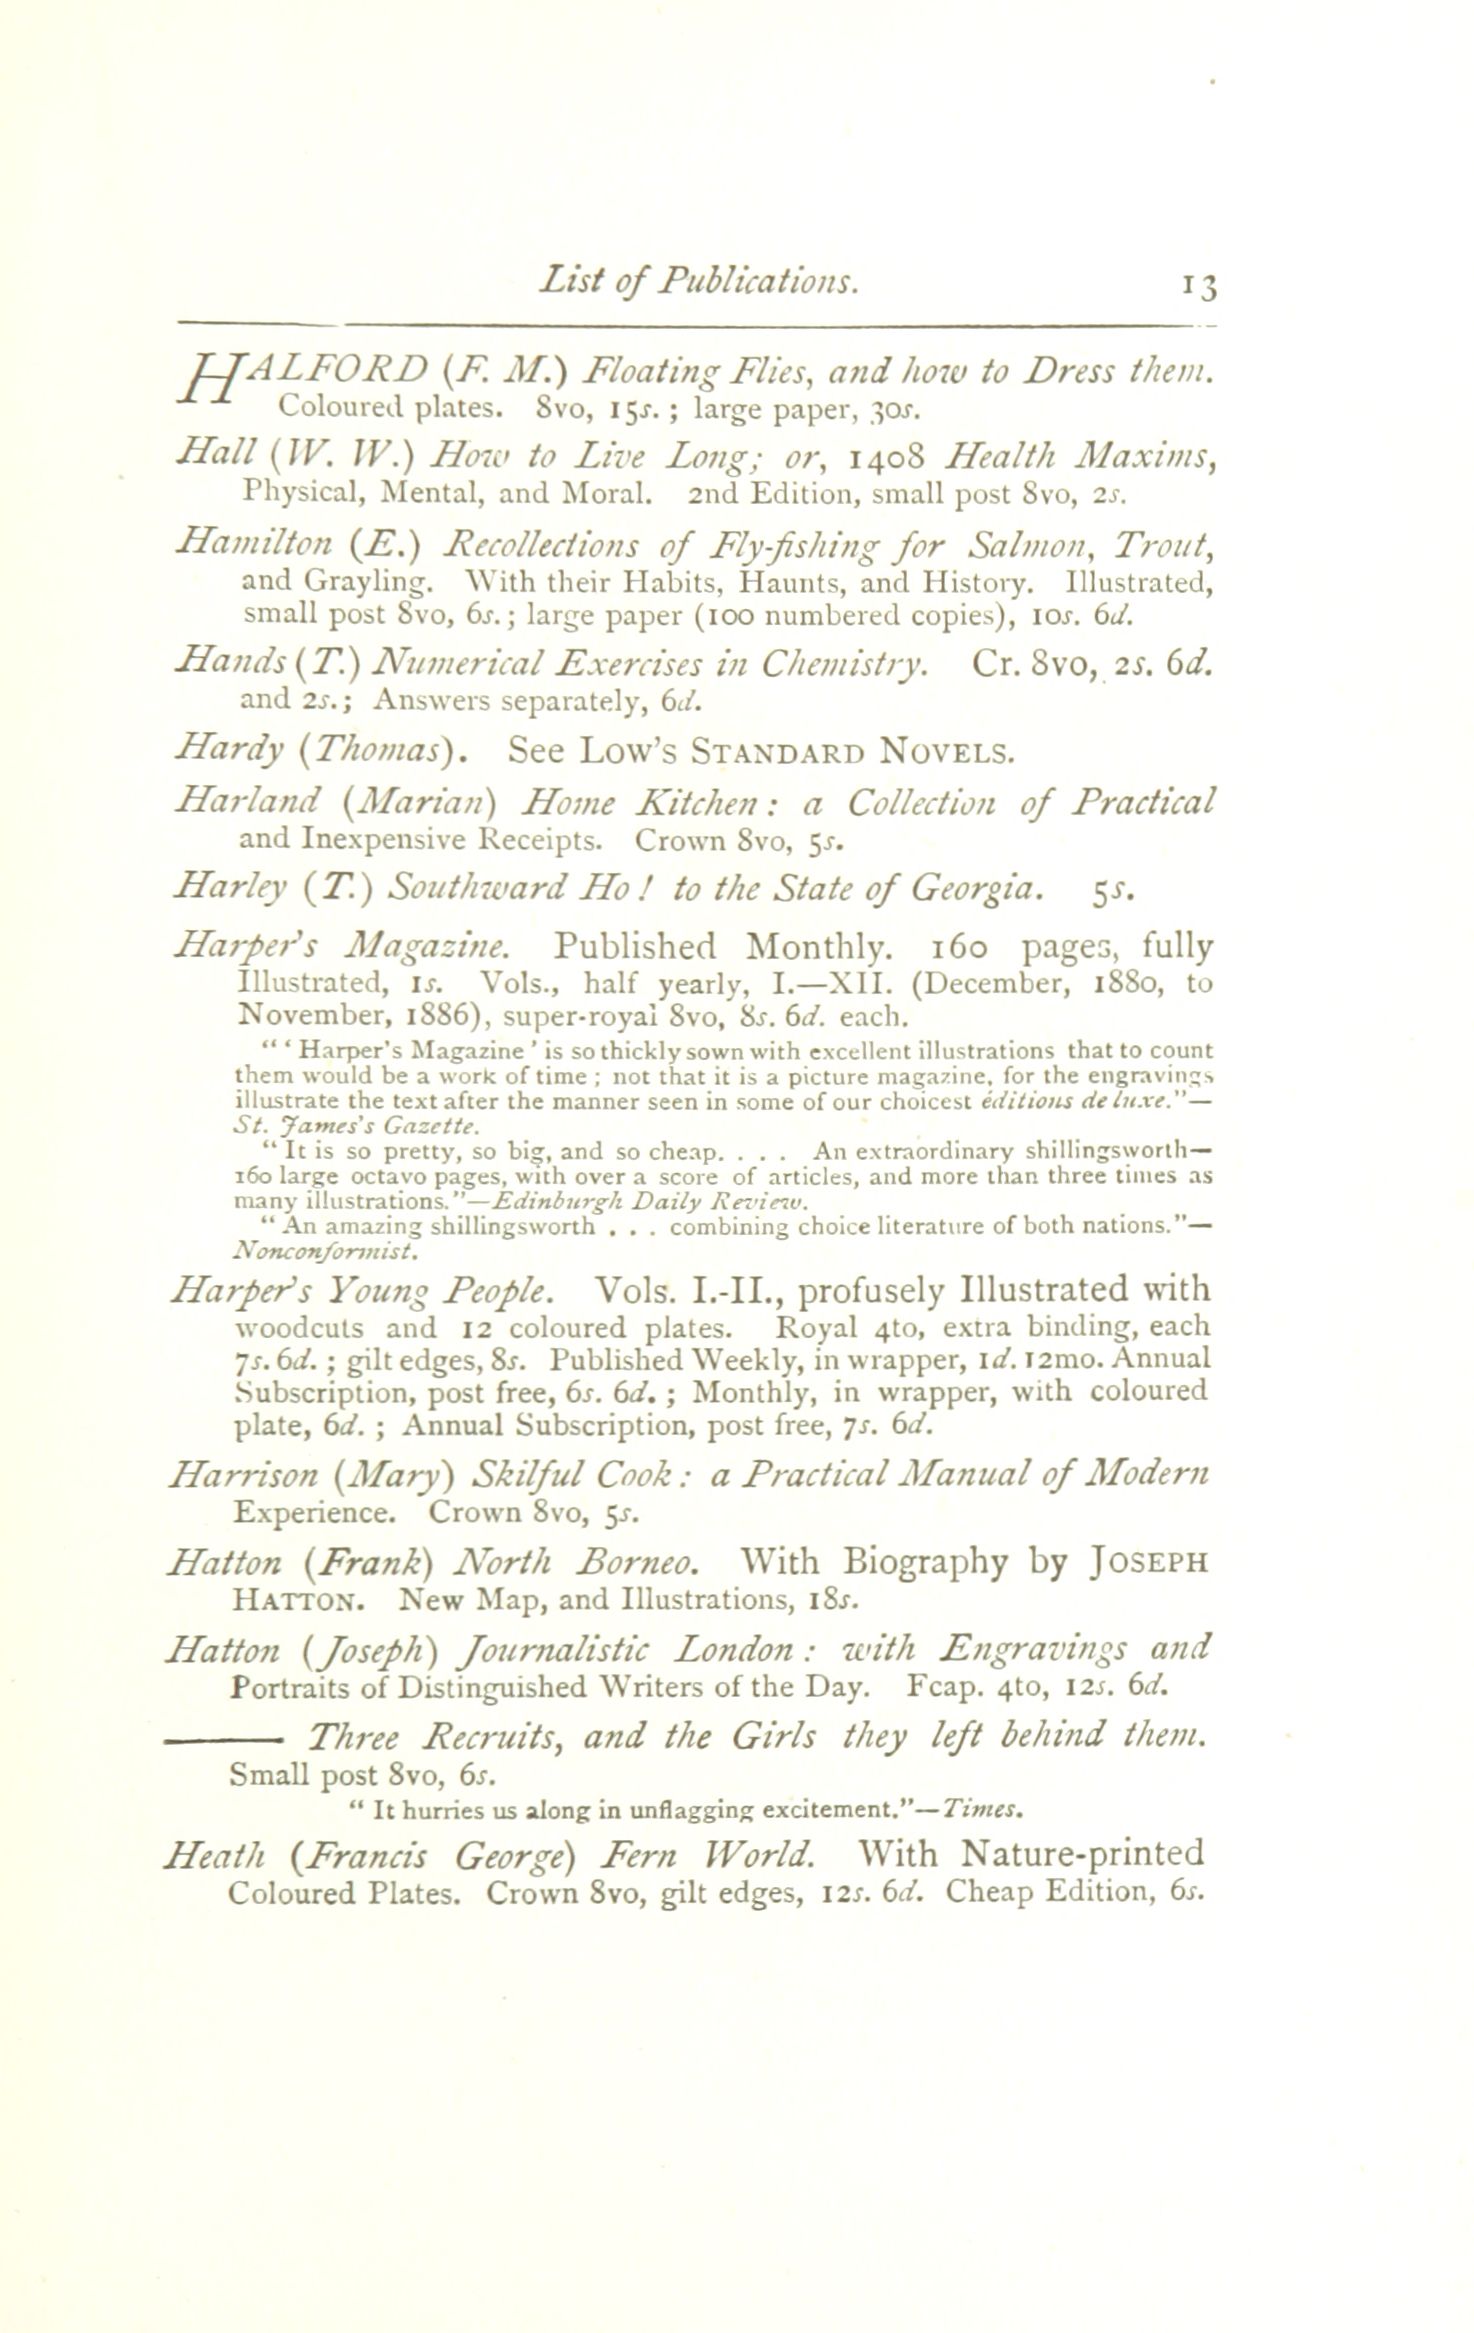 List of Publications. 13
HALFORD (F. M.) Floating Flies, and how to Dress them.
Coloured plates. 8vo, 15s.; large paper, 30s.
Hall (W. W.) How to Live Long; or, 1408 Health Maxims,
Physical, Mental, and Moral. 2nd Edition, small post 8vo, 2s.
Hamilton (E.) Recollections of Fly-fishing for Salmon, Trout,
and Grayling. With their Habits, Haunts, and History. Illustrated,
small post 8vo, 6s.; large paper (100 numbered copies), 10s. 6d.
Hands (T.) Numerical Exercises in Chemistry. Cr. 8vo, 2s. 6d.
and 2s.; Answers separately, 6d.
Hardy (Thomas). See LOW'S STANDARD NOVELS.
Harland (Marian) Home Kitchen: a Collection of Practical
and Inexpensive Receipts. Crown 8vo, 5s.
Harley (T.) Southward Ho! to the State of Georgia. 5s.
Harper's Magazine. Published Monthly. 160 pages, fully
Illustrated, 1s. Vols., half yearly, I.—XII. (December, 1880, to
November, 1886), super-royal 8vo, 8s. 6d. each.
"'Harper's Magazine' is so thickly sown with excellent illustrations that to count
them would be a work of time; not that it is a picture magazine, for the engravings
illustrate the text after the manner seen in some of our choicest éditions de luxe."—
St. James's Gazette.
"It is so pretty, so big, and so cheap. . . . An extraordinary shillingsworth—
160 large octavo pages, with over a score of articles, and more than three times as
many illustrations."—Edinburgh Daily Review.
"An amazing shillingsworth . . . combining choice literature of both nations."—
Nonconformist.
Harper's Young People. Vols. I.-II., profusely Illustrated with
woodcuts and 12 coloured plates. Royal 4to, extra binding, each
7s. 6d.; gilt edges, 8s. Published Weekly, in wrapper, 1d. 12mo. Annual
Subscription, post free, 6s. 6d.; Monthly, in wrapper, with coloured
plate, 6d.; Annual Subscription, post free, 7s. 6d.
Harrison (Mary) Skilful Cook: a Practical Manual of Modern
Experience. Crown 8vo, 5s.
Hatton (Frank) North Borneo. With Biography by JOSEPH
HATTON. New Map, and Illustrations, 18s.
Hatton (Joseph) Journalistic London: with Engravings and
Portraits of Distinguished Writers of the Day. Fcap. 4to, 12s. 6d.
——— Three Recruits, and the Girls they left behind them.
Small post 8vo, 6s.
"It hurries us along in unflagging excitement."—Times.
Heath (Francis George) Fern World. With Nature-printed
Coloured Plates. Crown 8vo, gilt edges, 12s. 6d. Cheap Edition, 6s.